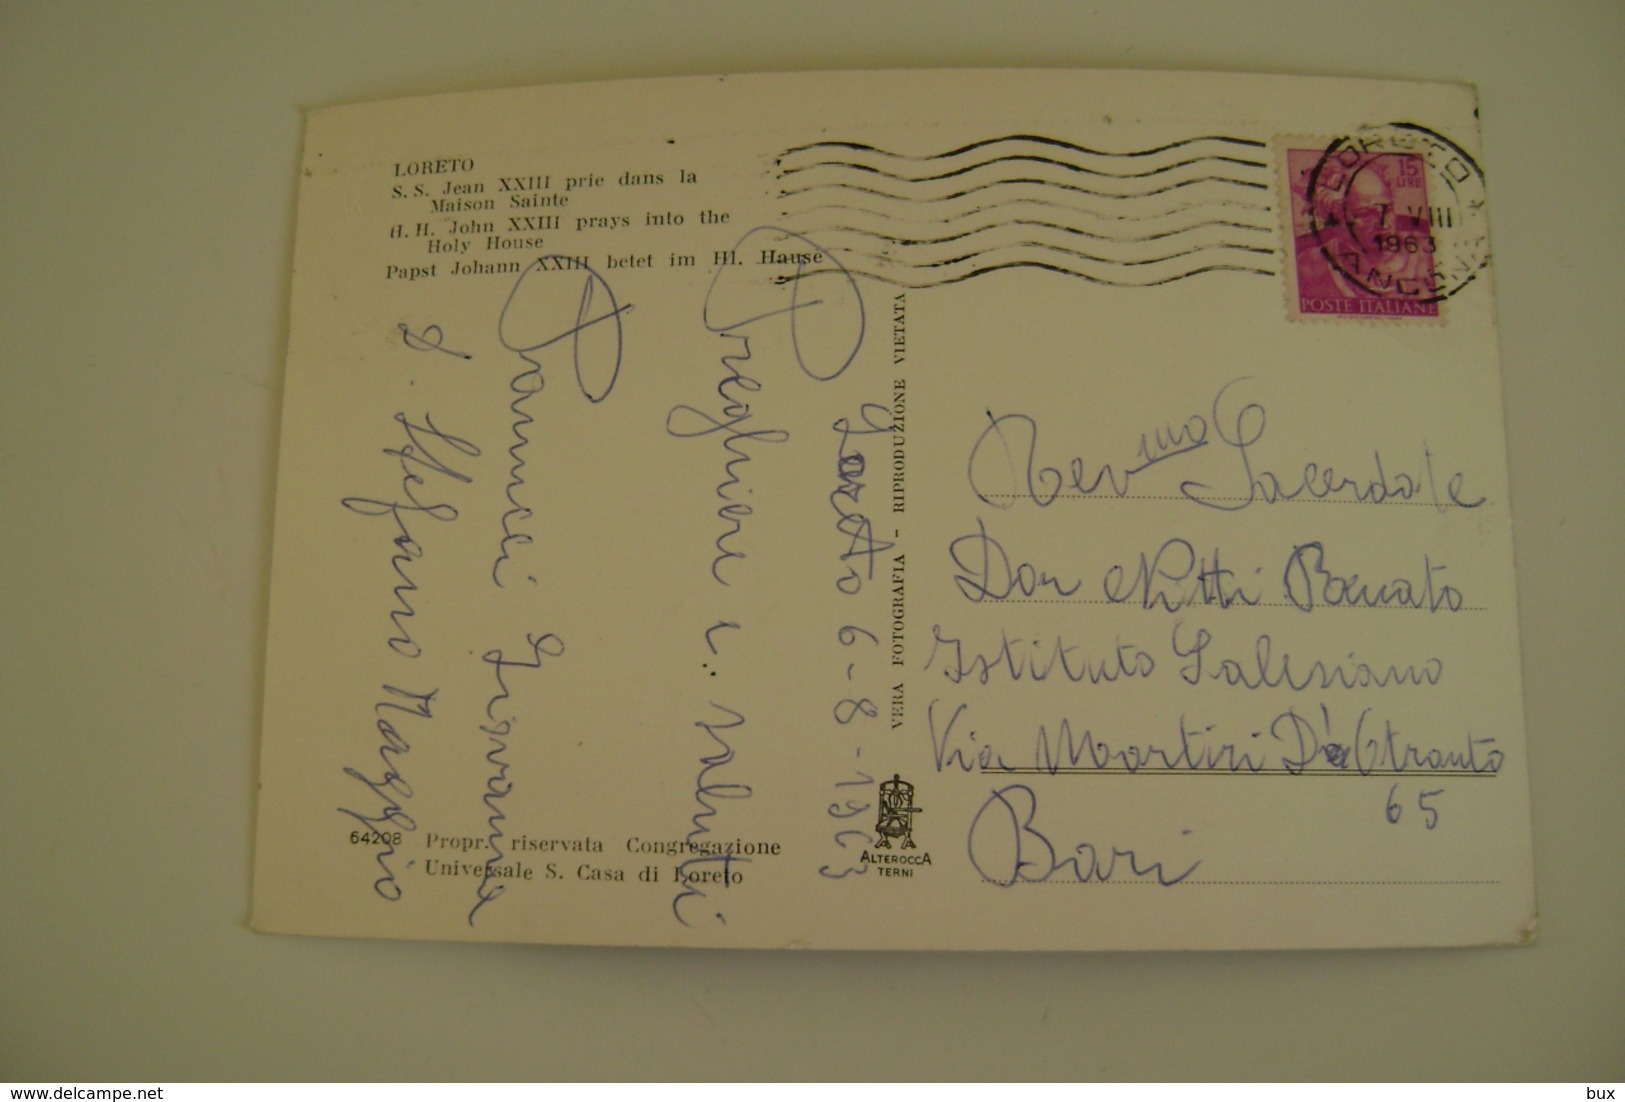 LORETO
S. S. Jean XXIII prie dans la
Maison Sainte
H. H. John XXIII prays into the
Holy House
Papst Johann XXIII betet im Hl. Hause
Loreto 6-8-1963
Preghiere e saluti
Giovanna
d. Stefano Maggio
64208 Propr. riservata Congregazione
Universale S. Casa di Loreto
VERA FOTOGRAFIA - RIPRODUZIONE VIETATA
ALTEROCCA
TERNI
15
LIRE
POSTE ITALIANE
LORETO
7 VIII
1963
ANCONA
Revmo Sacerdote
Don Pitti Renato
Istituto Salesiano
Via Martiri D'Otranto
65
Bari
delcampe.net
bux